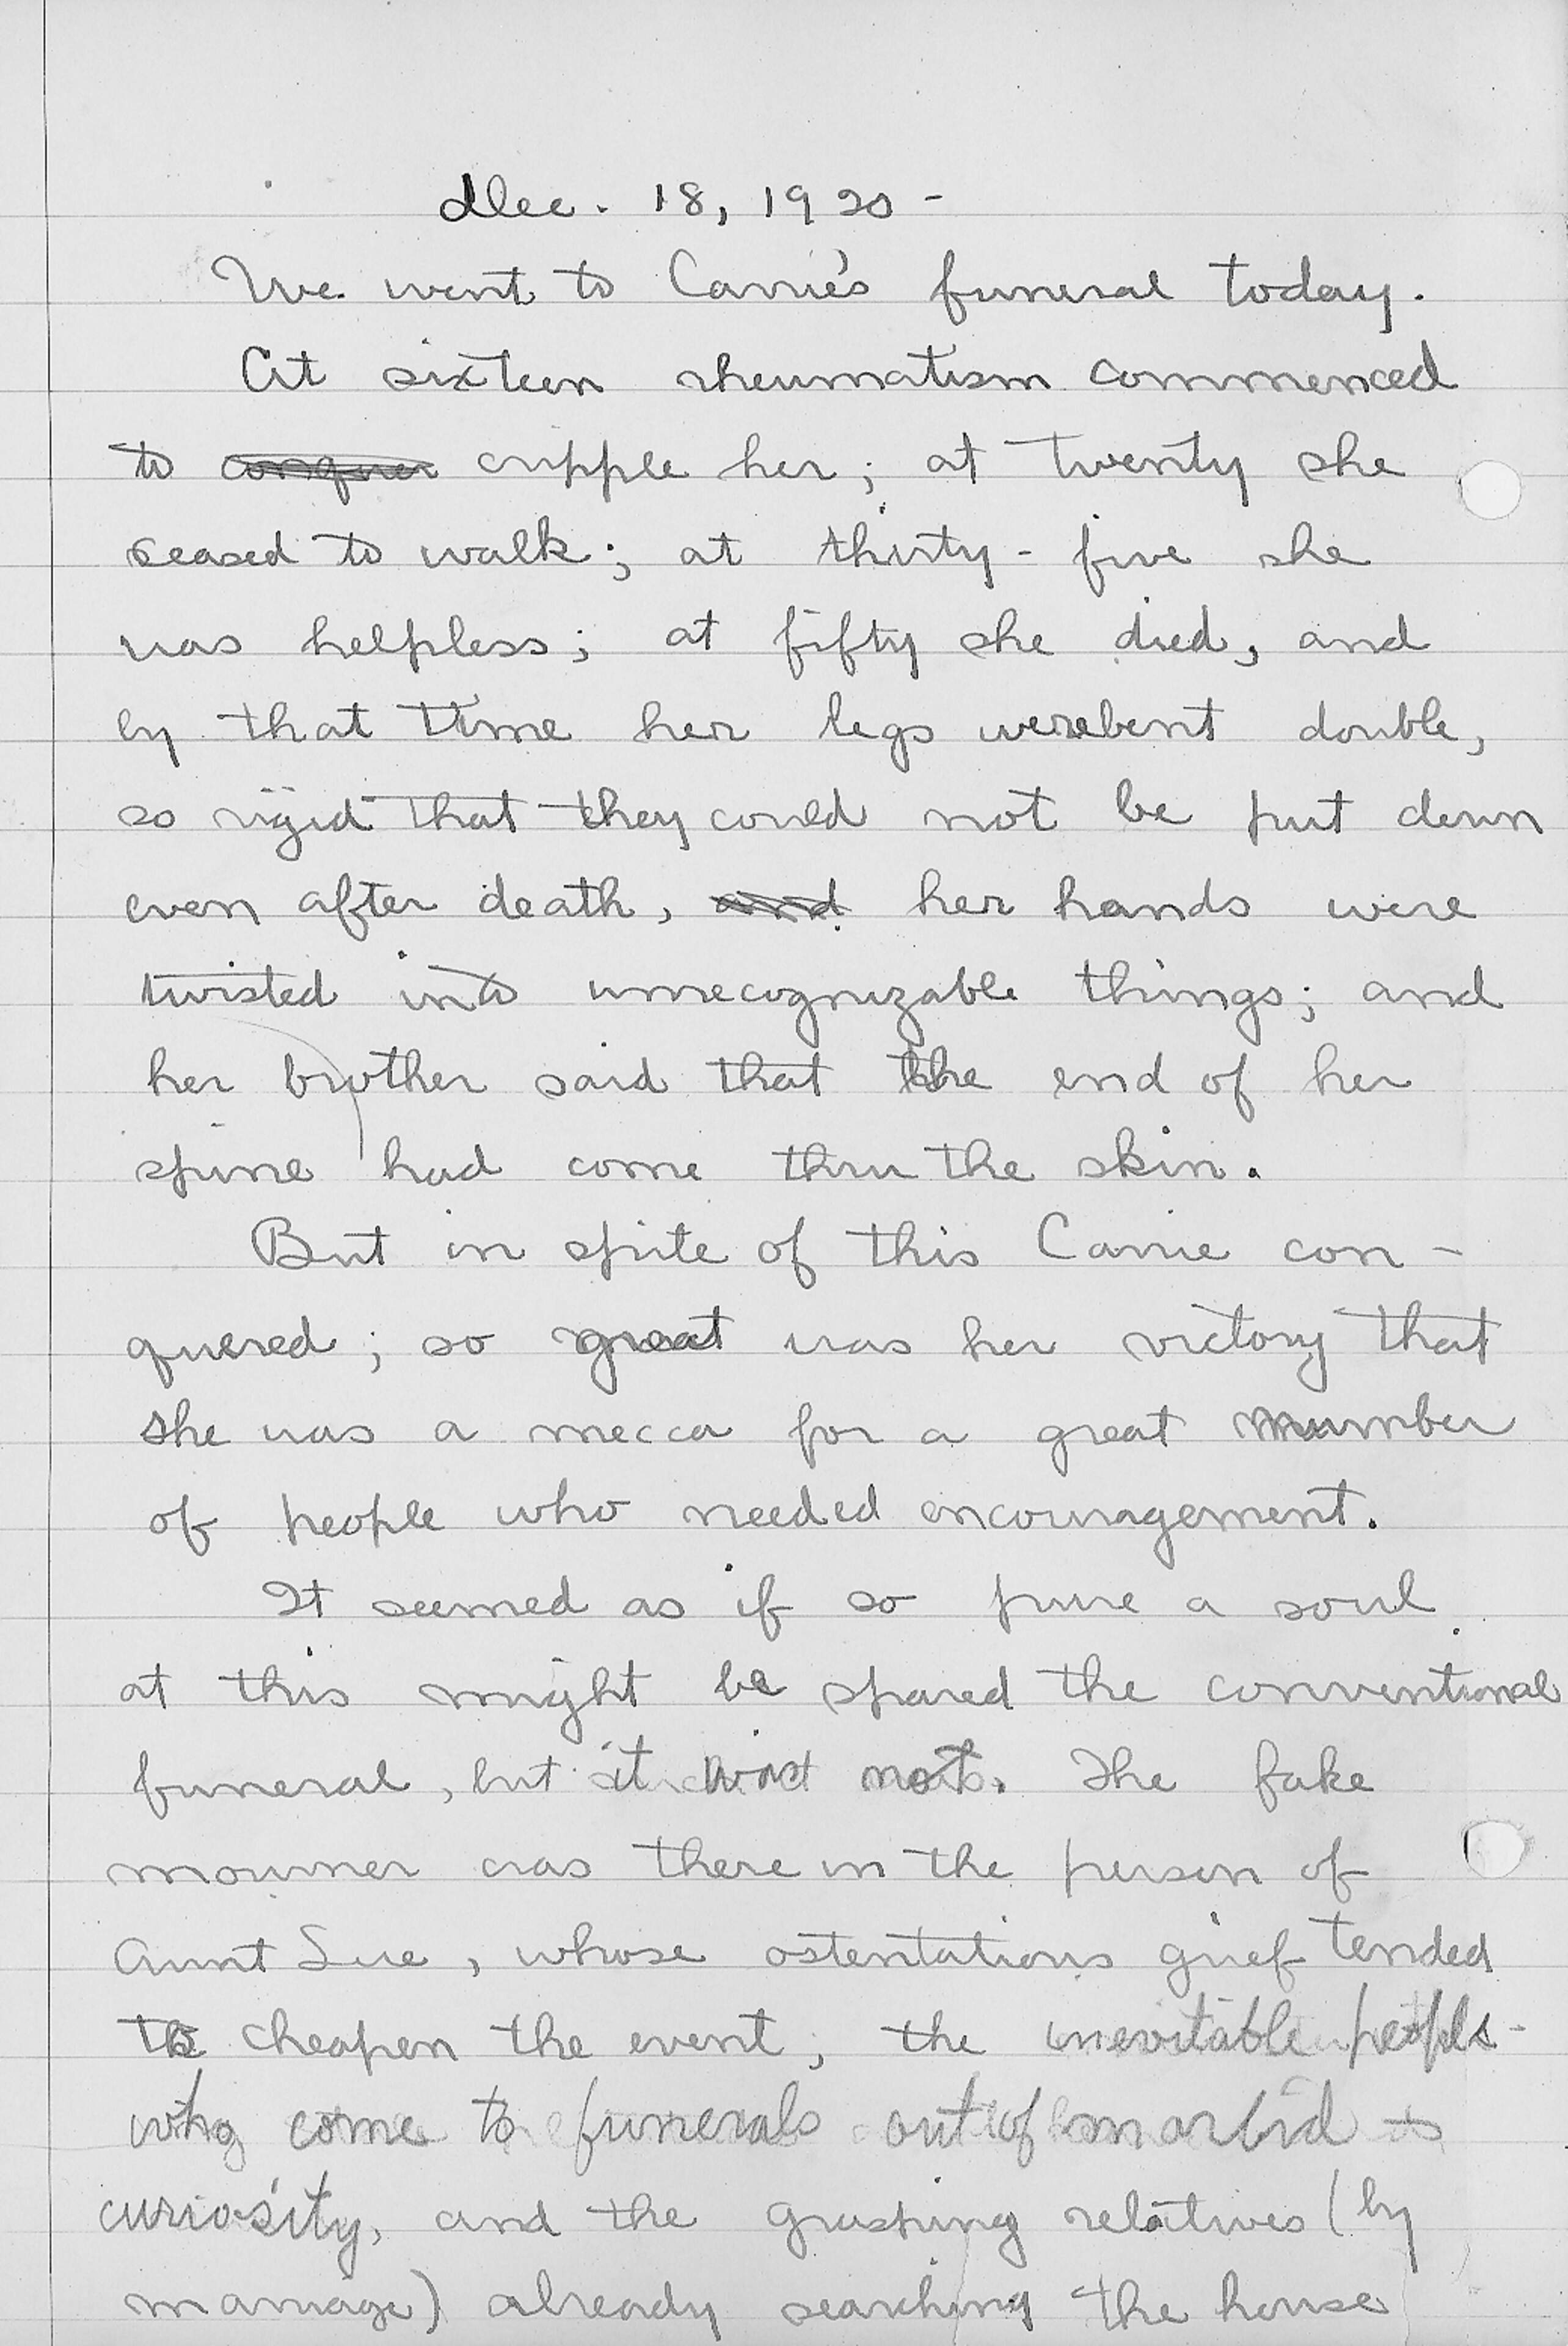 Dec. 18, 1920 -
We went to Carrie's funeral today.
At sixteen rheumatism commenced
to conquer cripple her; at twenty she
ceased to walk; at thirty-five she
was helpless; at fifty she died, and
by that time her legs were bent double,
so rigid that they could not be put down
even after death, and her hands were
twisted into unrecognizable things; and
her brother said that the end of her
spine had come thru the skin.
But in spite of this Carrie con-
quered; so great was her victory that
she was a mecca for a great number
of people who needed encouragement.
It seemed as if so pure a soul
at this might be spared the conventional
funeral, but it was not. The fake
mourner was there in the person of
Aunt Sue, whose ostentatious grief tended
to cheapen the event; the inevitable people
who come to funerals out of morbid
curiosity, and the grasping relatives (by
marriage) already searching the house